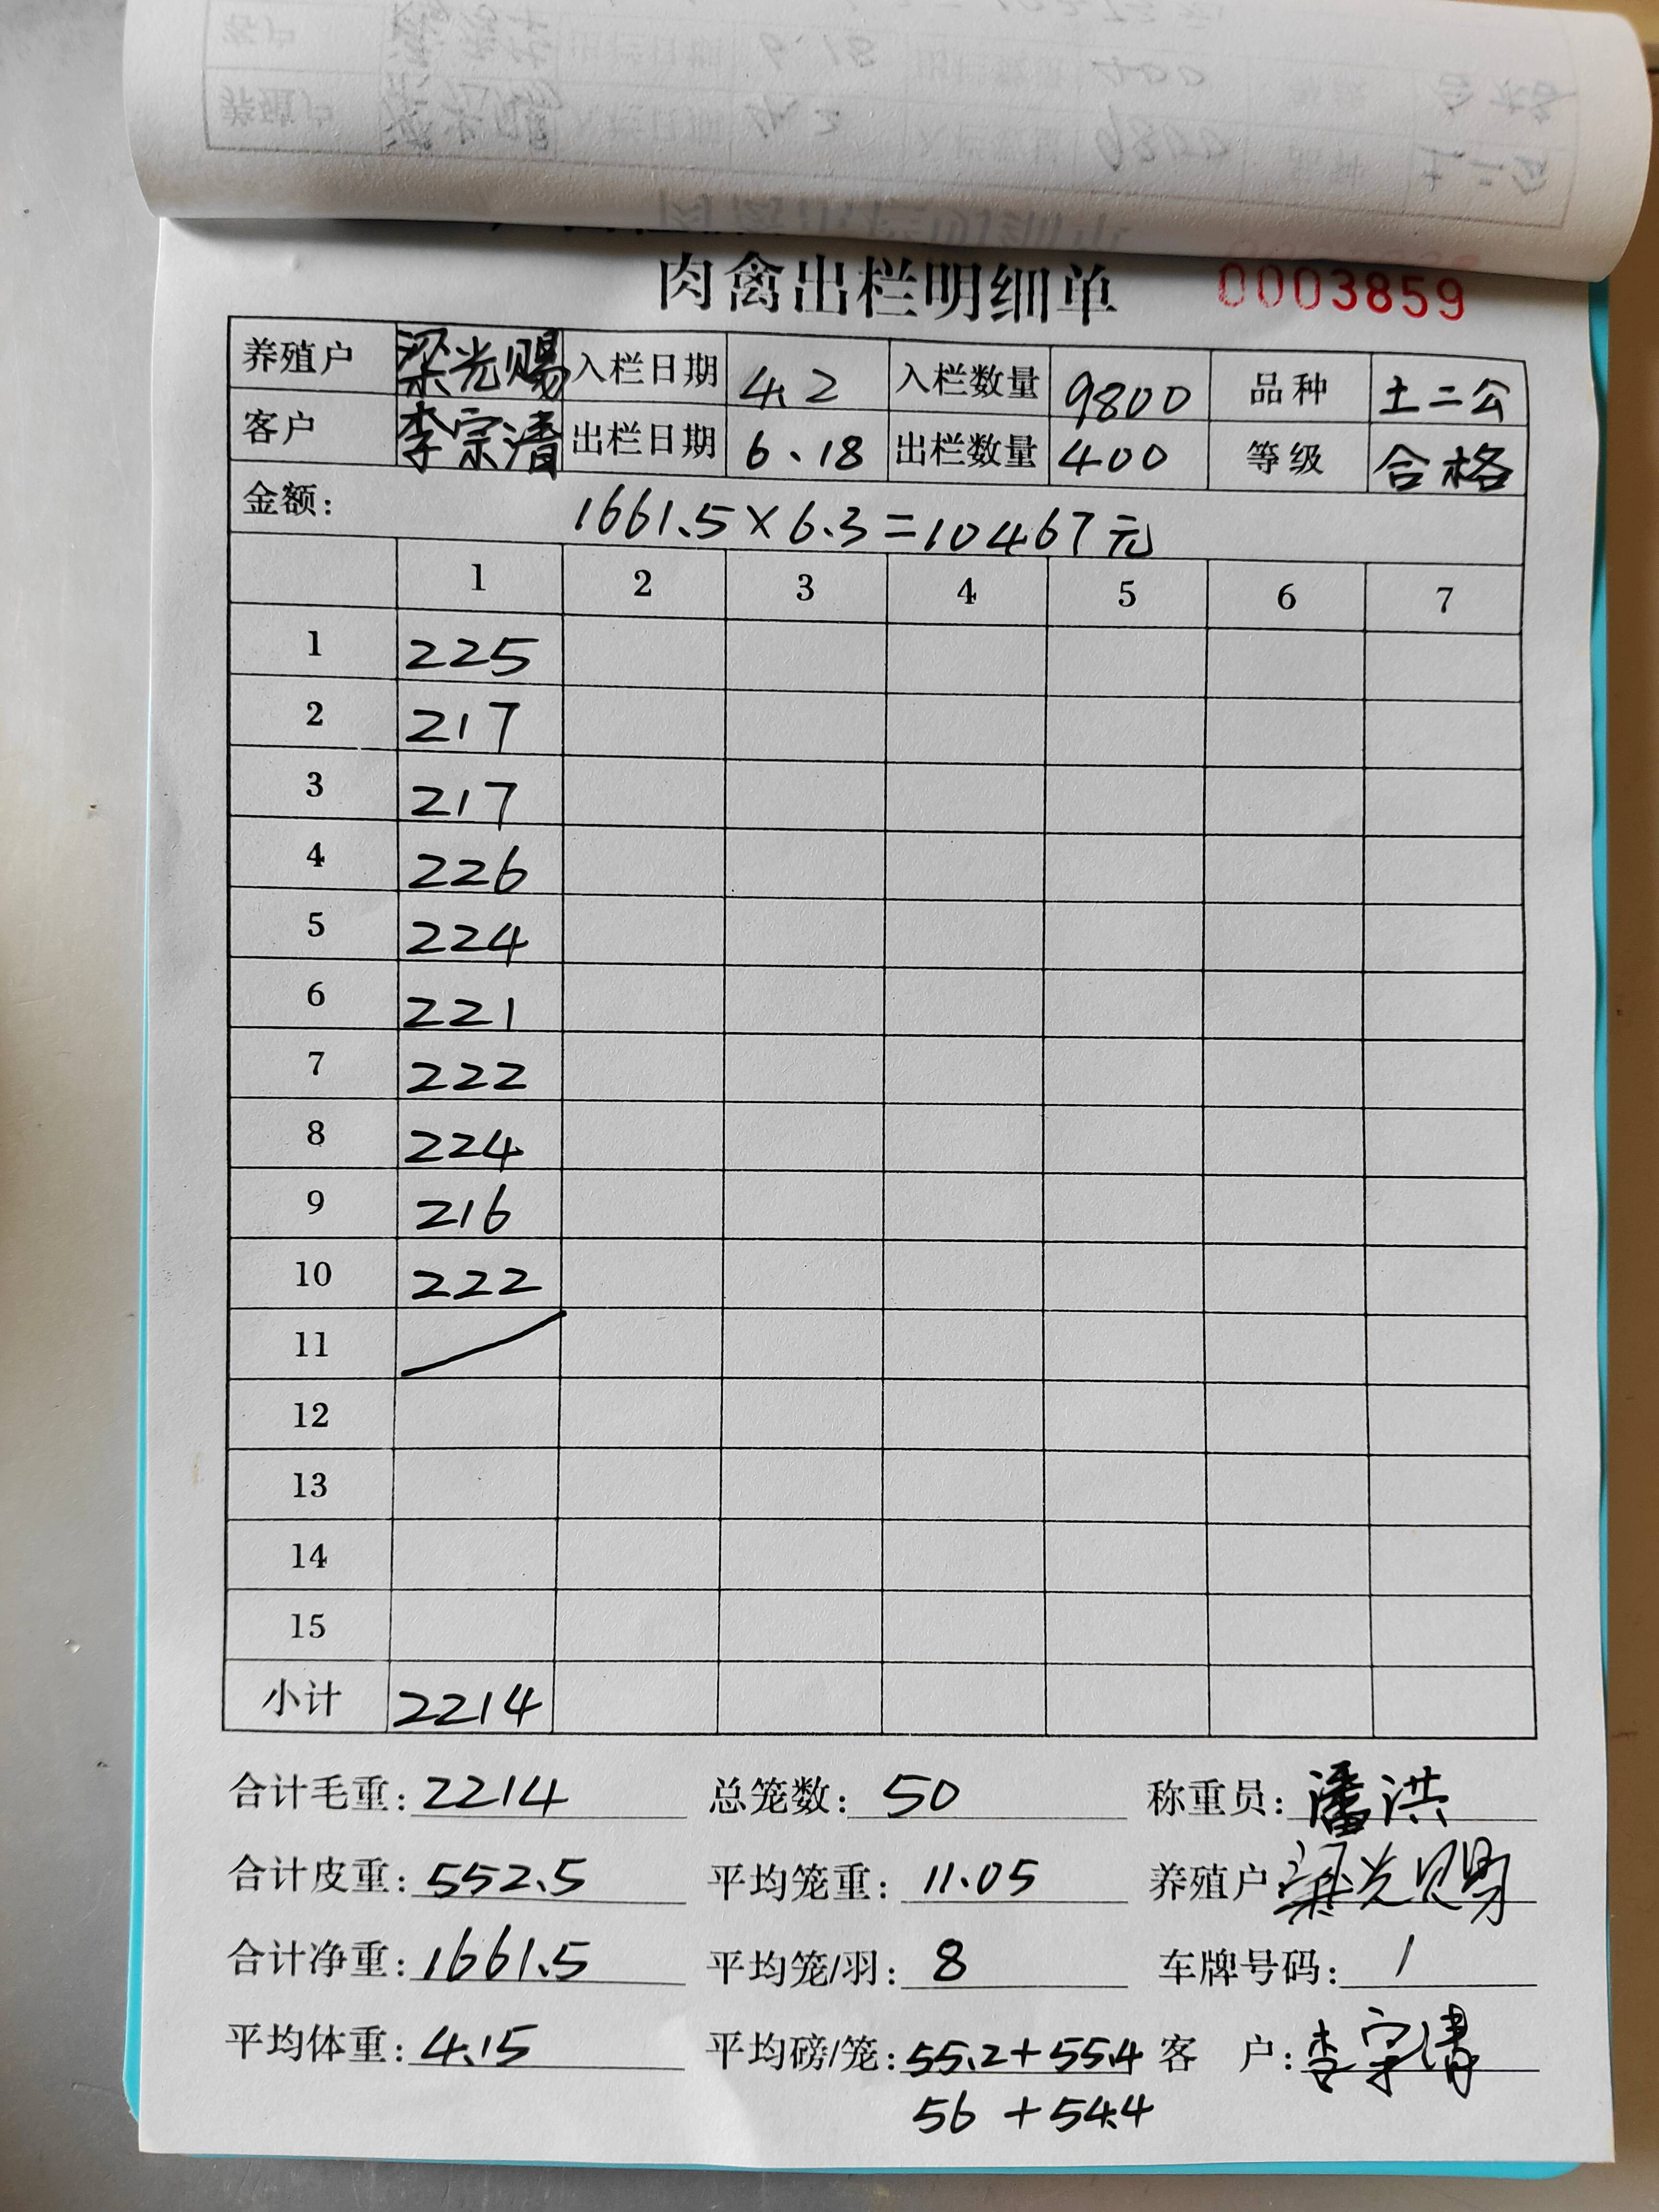 肉禽出栏明细单 0003859
养殖户 梁光赐 入栏日期 4.2 入栏数量 9800 品种 土二公
客户 李宗清 出栏日期 6.18 出栏数量 400 等级 合格
金额: 1661.5×6.3=10467元
1 2 3 4 5 6 7
1 225
2 217
3 217
4 226
5 224
6 221
7 222
8 224
9 216
10 222
11
12
13
14
15
小计 2214
合计毛重: 2214 总笼数: 50 称重员: 潘洪
合计皮重: 552.5 平均笼重: 11.05 养殖户: 梁光赐
合计净重: 1661.5 平均笼/羽: 8 车牌号码: /
平均体重: 4.15 平均磅/笼: 55.2+55.4 客户: 李宗清
56+54.4